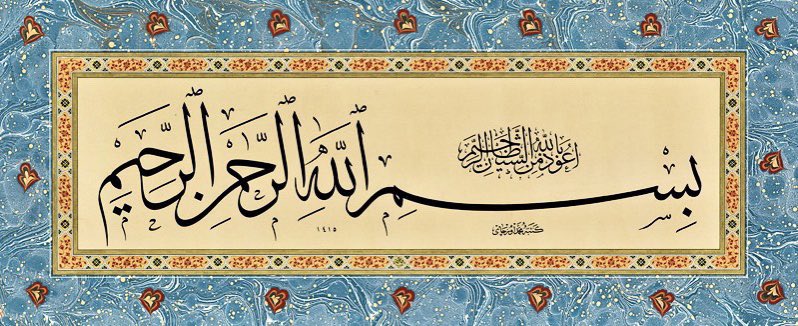 أعوذ بالله من الشيطان الرجيم
بِسْمِ اللهِ الرَّحْمٰنِ الرَّحِيمِ
كتبه محمد اوزچاى
١٤١٥